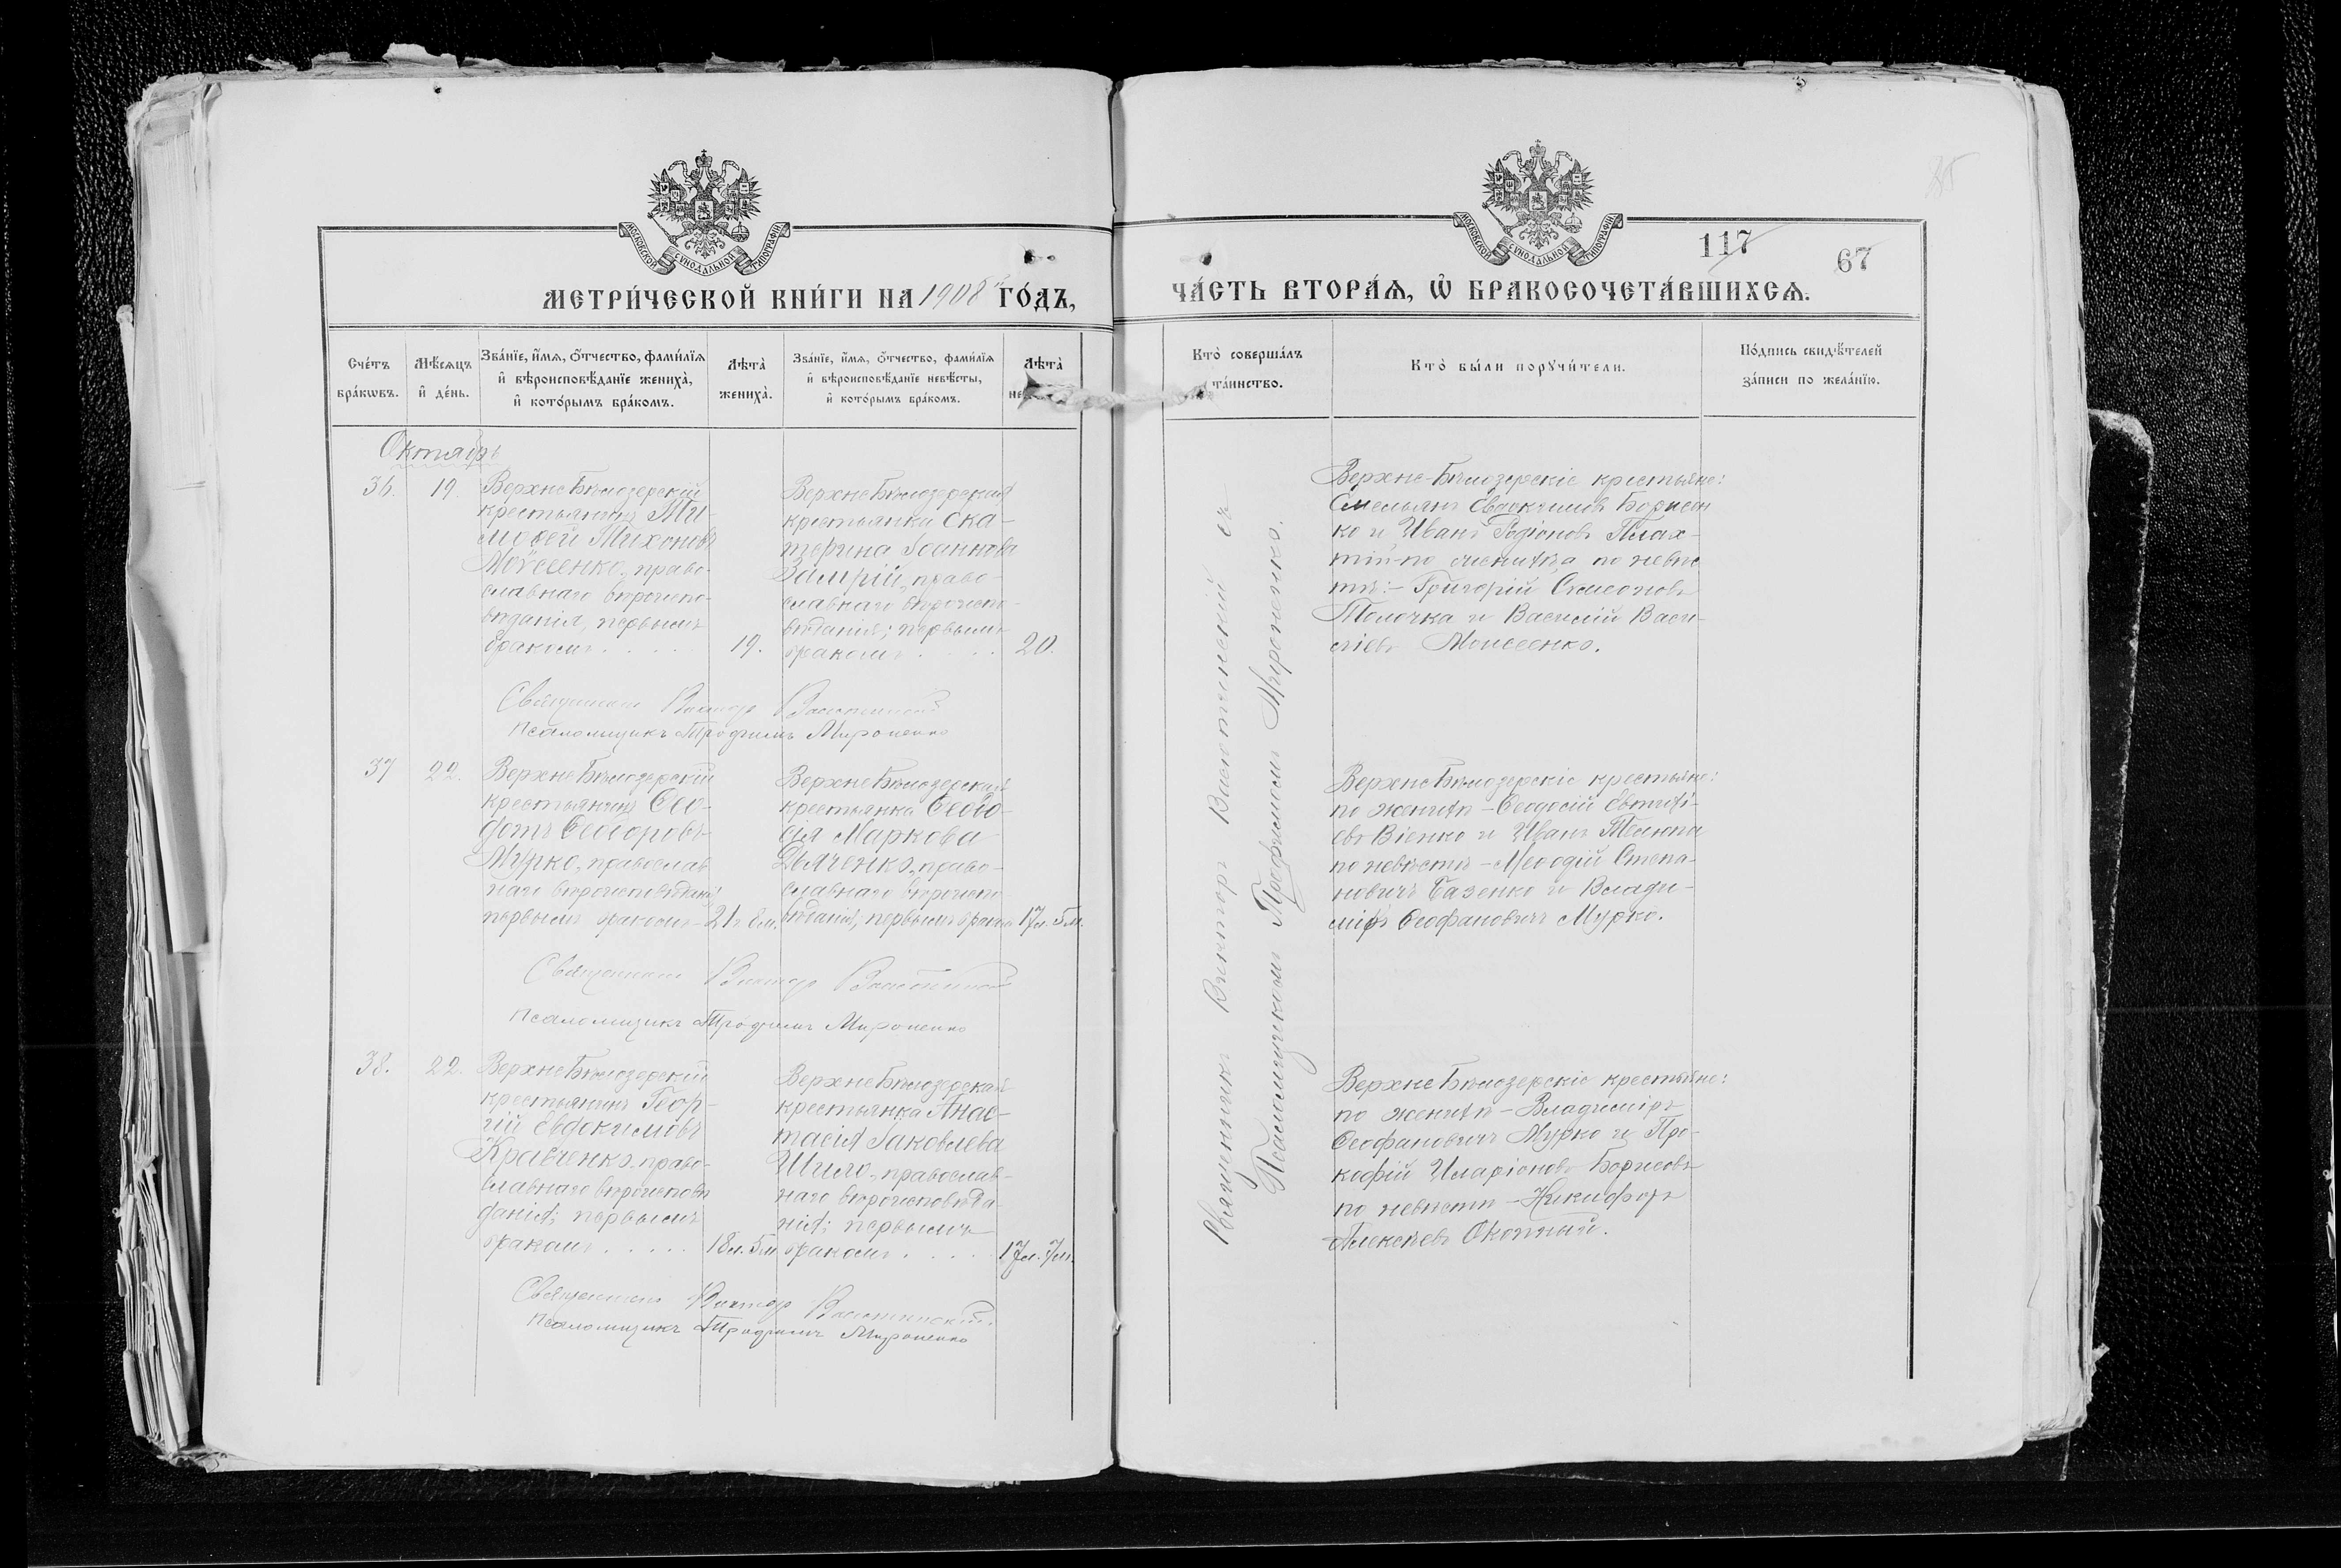 МОСКОВСКОЙ СѴНОДАЛЬНОЙ ТИПОГРАФІИ
МЕТРИ́ЧЕСКОЙ КНИ́ГИ НА 1908 й ГО́ДЪ,
Сче́тъ бра́кѡвъ.
Мѣ́сяцъ и҆ де́нь.
Зва́нїе, и҆́мѧ, ѻ҆́тчество, фами́лїѧ
и҆ вѣроисповѣ́данїе жениха̀,
и҆ кото́рымъ бра́комъ.
Лѣта̀ жениха̀.
Зва́нїе, и҆́мѧ, ѻ҆́тчество, фами́лїѧ
и҆ вѣроисповѣ́данїе невѣ́сты,
и҆ кото́рымъ бра́комъ.
Лѣта̀
Октябрь
36.
19.
Верхне Бѣлозерскій
крестьянинъ Ти-
моѳей Тихоновъ
Моисеенко, право-
славнаго вѣроиспо-
вѣданія, первымъ
бракомъ . . . . .
19.
Верхне Бѣлозерская
крестьянка Ека-
терина Іоаннова
право-
славнаго вѣроиспо-
вѣданія; первымъ
бракомъ . . . .
20.
Священникъ Викторъ
Псаломщикъ Трофимъ Мироненко
37
22.
Верхне Бѣлозерскій
крестьянинъ Ѳео-
дотъ Ѳеодоровъ
Мурко, православ
наго вѣроисповѣданія
первымъ бракомъ - 21 г. 8 м.
Верхне Бѣлозерская
крестьянка Ѳеодо-
сія Маркова
Дяченко, право-
славнаго вѣроиспо-
вѣданія, первымъ бракомъ
17 л. 5 м.
Священникъ Викторъ
Псаломщикъ Трофимъ Мироненко
38.
22.
Верхне Бѣлозерскій
крестьянинъ Геор-
гій Евдокимовъ
Кравченко, право-
славнаго вѣроисповѣ
данія; первымъ
бракомъ . . . . .
18 л. 5 м.
Верхне Бѣлозерская
крестьянка Анас-
тасія Іаковлева
Шило, православ-
наго вѣроисповѣда-
нія; первымъ
бракомъ . . . .
17 л. 7 м.
Священникъ Викторъ
Псаломщикъ Трофимъ Мироненко
МОСКОВСКОЙ СѴНОДАЛЬНОЙ ТИПОГРАФІИ
117
67
ЧА́СТЬ ВТОРА́Ѧ, Ѽ БРАКОСОЧЕТА́ВШИХСѦ.
Кто̀ соверша́лъ
та́инство.
Кто̀ бы́ли порꙋчи́тели.
По́дпись свидѣ́телей
за́писи по жела́нїю.
Священникъ Викторъ съ
Псаломщикомъ Трофимомъ Мироненко.
Верхне-Бѣлозерскіе крестьяне:
Емельянъ Евдокимовъ Борисен
ко и Иванъ Родіоновъ Плах-
тій - по женихѣ, а по невѣс
тѣ: - Григорій Симеоновъ
Толочка и Василій Васи-
ліевъ Моисеенко.
Верхне Бѣлозерскіе крестьяне:
по женихѣ - Ѳеодосій Евтихі-
евъ Віенко и Иванъ
по невѣстѣ - Меѳодій Степа-
новичъ Базенко и Влади-
міръ Ѳеофановичъ Мурко.
Верхне Бѣлозерскіе крестьяне:
по женихѣ - Владиміръ
Ѳеофановичъ Мурко и Про-
кофій Иларіоновъ Борисовъ
по невѣстѣ - Никифоръ
Алексѣевъ Окопный.